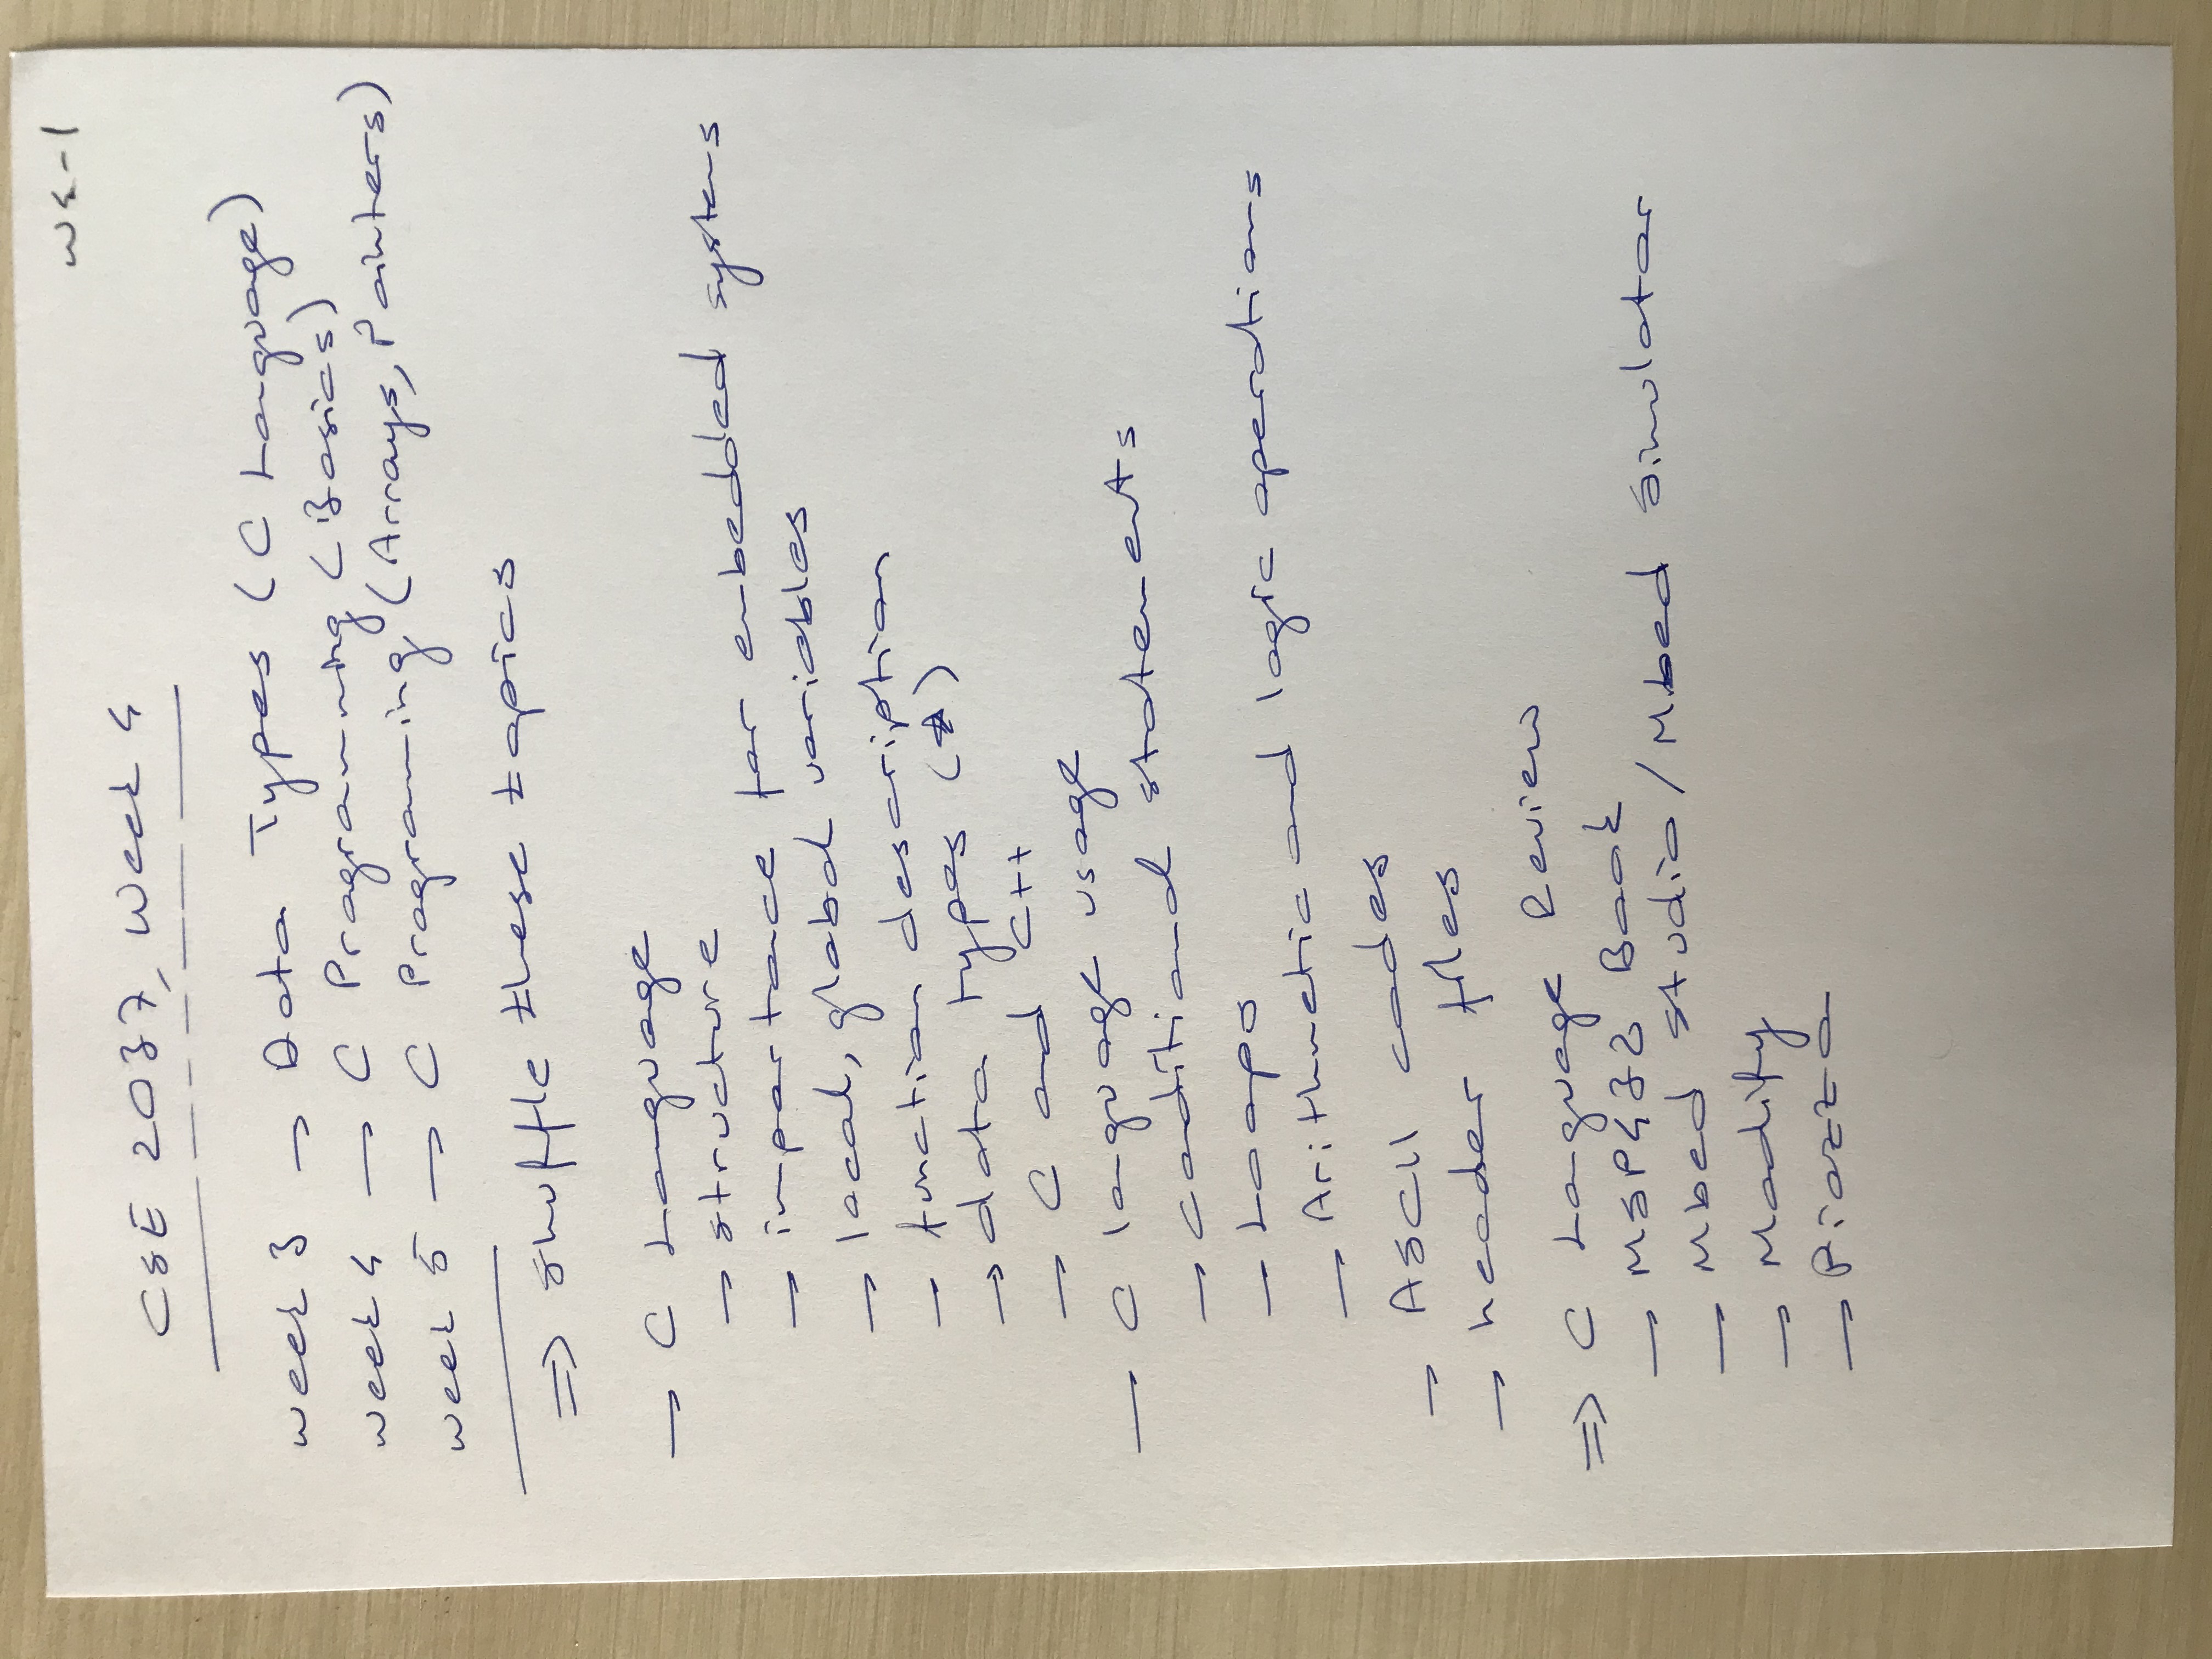 W4-1
CSE 2037, Week 4
Week 3 → Data Types (C Language)
Week 4 → C Programming (Basics)
Week 5 → C Programing (Arrays, Pointers)
⇒ shuffle these topics
→ C Language
→ structure
→ importace for embedded systems
→ local, global variables
→ function description
→ data types (*)
→ C and C++
→ C language usage
→ conditional statements
→ Loops
→ Arithmetic and logic operations
→ ASCII codes
→ header files
⇒ C Language Review
→ MSP432 Book
→ Mbed Studio / Mbed Simulator
→ Modify
→ Piazza